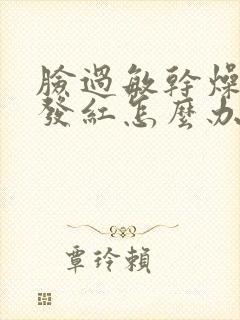 臉過敏幹燥
發紅怎麼办
覃玲賴